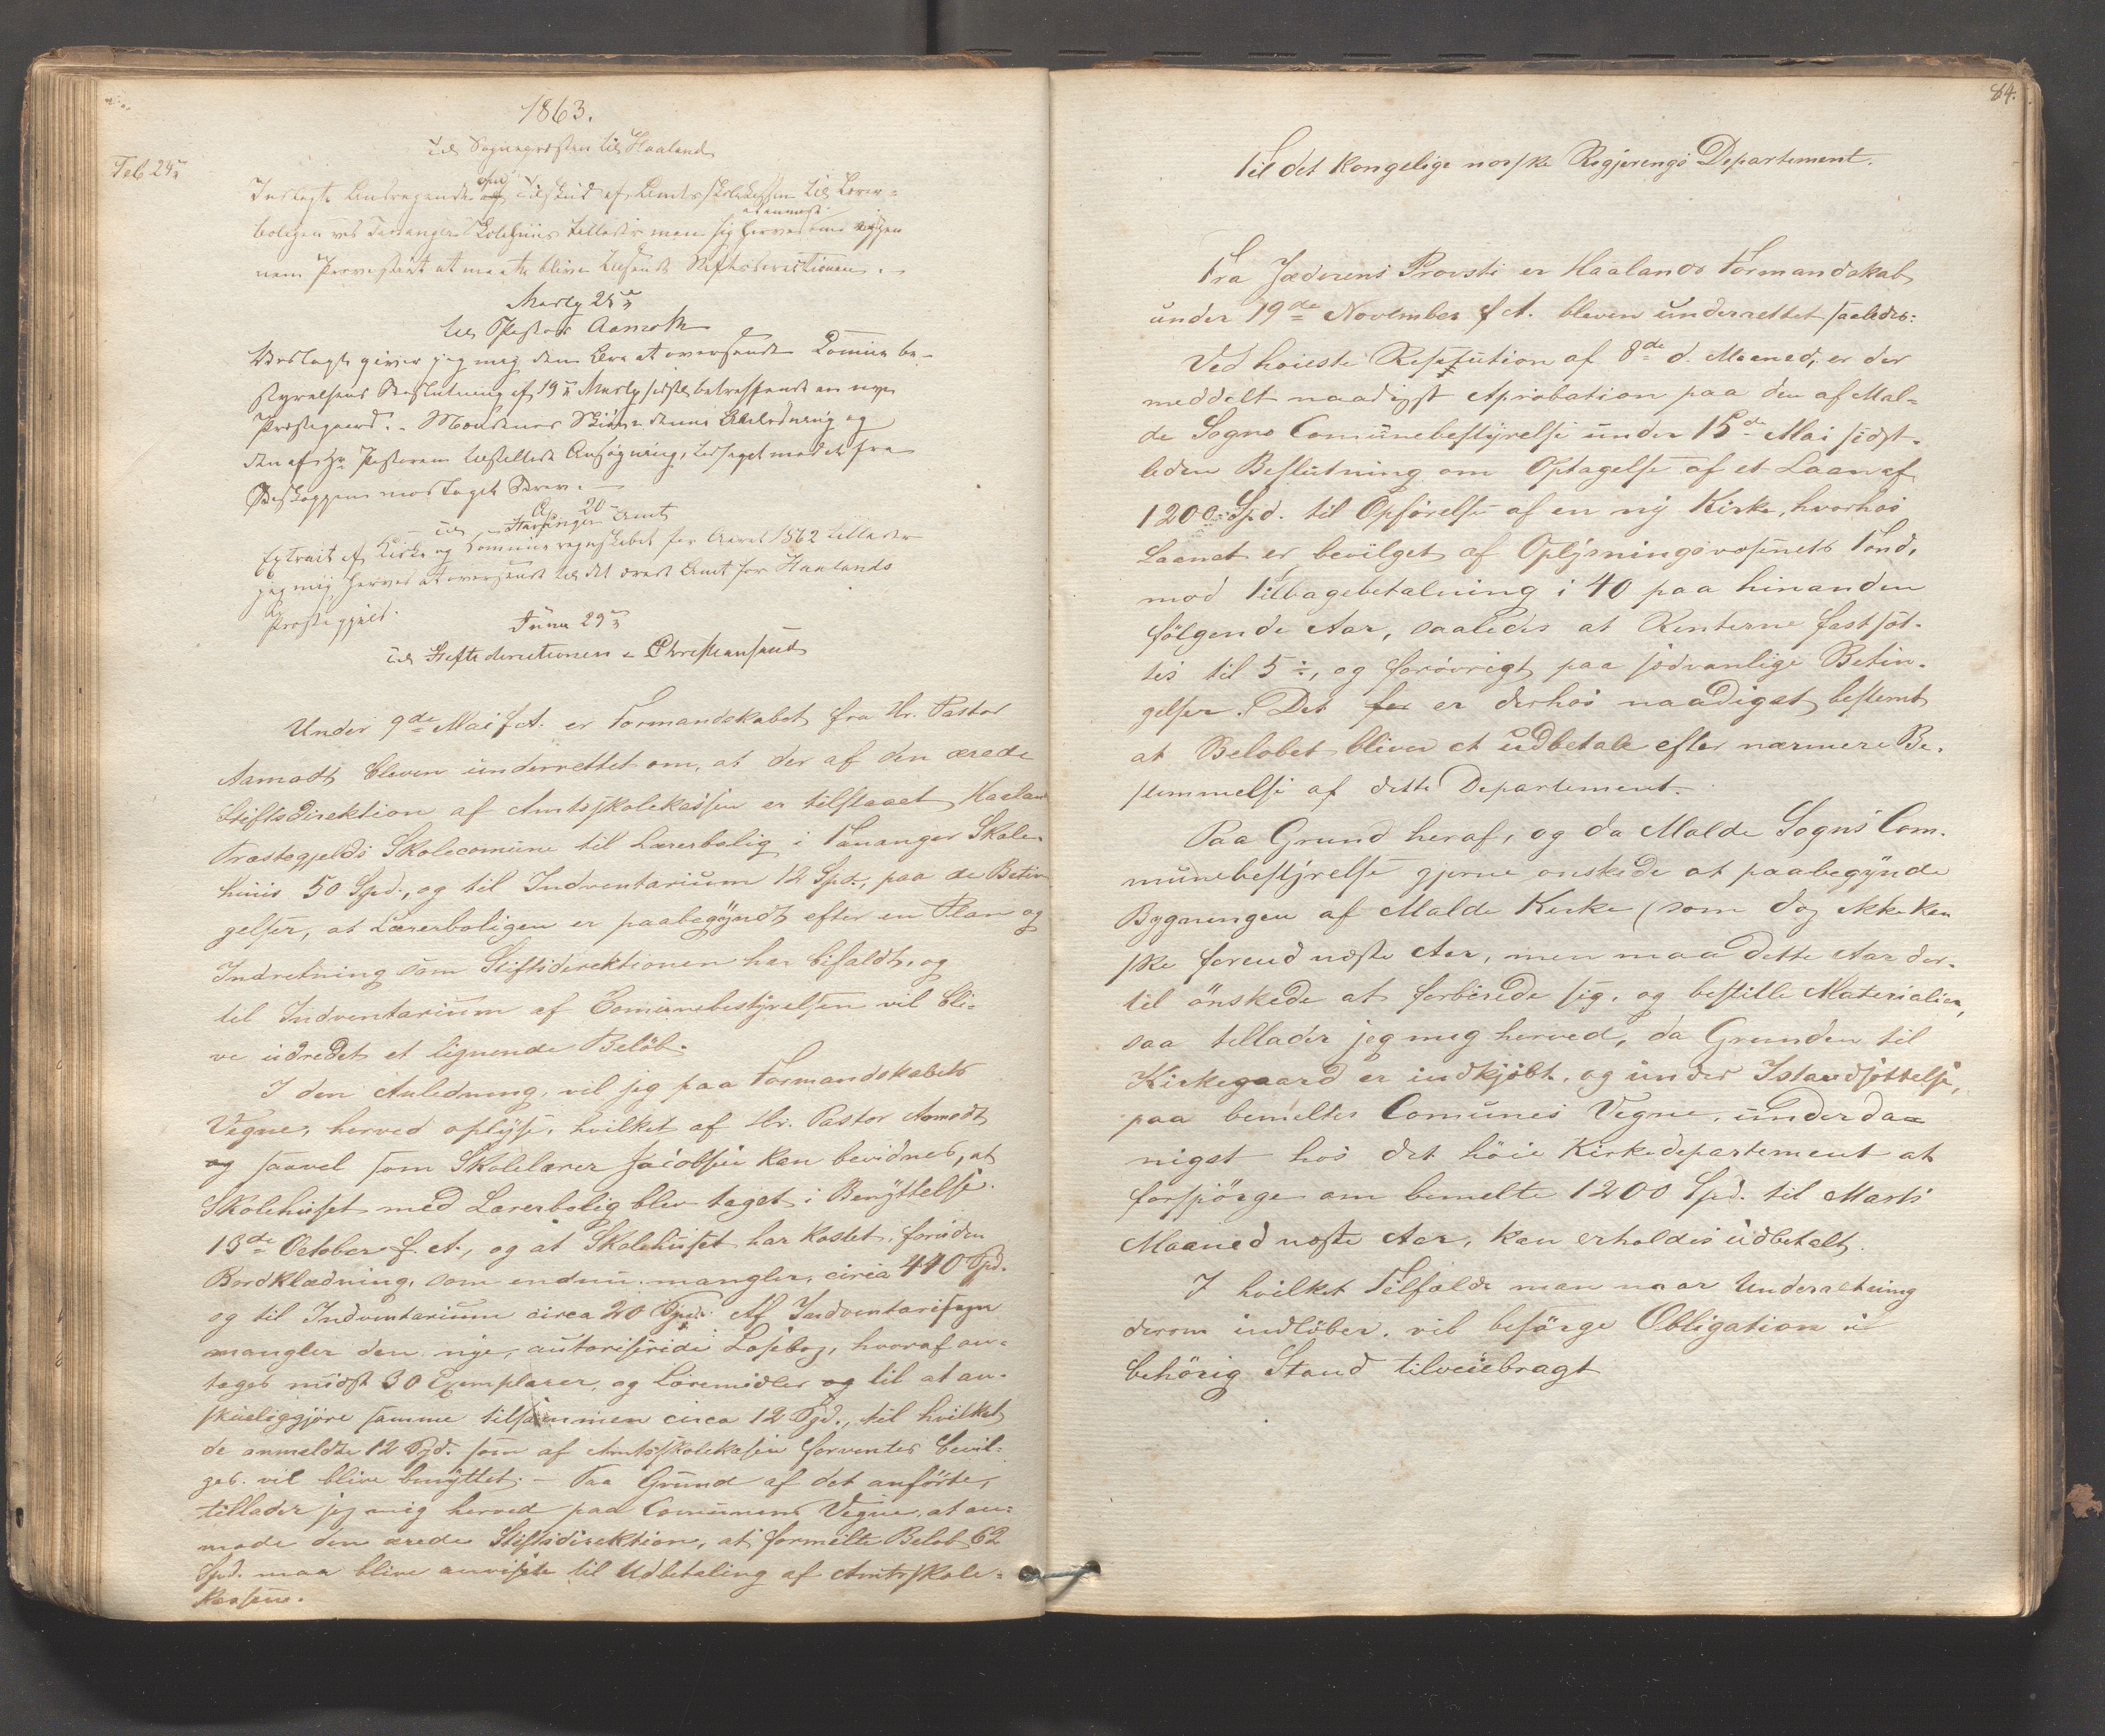 1863.
Til Sogneprosten til Haaland
Feb 24de
Indlagte Andragende om Tilskud af Amtsskolekassen til Lærer=
boligen ved Tananger Skolehuus tillader man sig herved
Provstiet at maatte blive tilsendt Stiftsdirectionen. –
Marty 25de
til Pastor Aamodt
Vedlagte giver jeg mig den Ære at oversende Commünebe-
styrelsens Beslutning af 19de Marty sidstl. betræffende en nye
Præstegaard. –
den af Hr. Pastoren Ansøgning, ledsaget med det fra
Biskoppen modtaget Brev. –
Ap. 20
Til Stavanger Amt
Extrait af Kirke og Commune regnskabet for Aaret 1862 tillader
jeg mig herved at oversende til det ærede Amt for Haalands
Præstegjeld.
Juni 29de
Til Stiftsdirectionen i Christiansand
Under 9de Mai f. A. er Formandskabet fra Hr. Pastor
Aamodt bleven ünderrettet om, at der af den ærede
Stiftsdirektion af Amtsskolekassen er tilstaaet Haaland
Præstegjelds Skolecomüne til Lærerbolig i Tananger Skole-
hüüs 50 Spd., og til Indventariüm 12 Spd., paa de Betin
gelser, at Lærerboligen er paabegÿndt efter en Plan og
Indretning som Stiftsdirektionen har bifaldt, og
til Indventariüm af Comünebestÿrelsen vil bli=
ve üdredet et lignende Beløb.
I den Anledning, vil jeg paa Formandskabets
Vegne, herved oplÿse, hvilket af Hr. Pastor Aamodt
og saavel som Skolelærer Jacobsen kan bevidnes, at
Skolehüset med Lærerbolig blev taget i Benÿttelse
13de October f. A., og at Skolehüset har kostet, foruden
Bordklædning, som endnü mangler, circa 440 Spd.
og til Indventariüm circa 20 Spd. Af Indventariesager
mangler den nye, autoriserede Læsebog, hvoraf an=
tages mindst 30 Exemplarer, og Læremidler og til at an-
skueliggjøre samme tilsammen circa 12 Spd., til hvilket
de anmeldte 12 Spd. som af Amtsskolekassen forventes bevil=
get. vil blive benÿttet. – Paa Gründ af det anförte,
tillader jeg mig herved paa Comünens Vegne, at an=
mode den ærede Stiftsdirektion, at formelte Beløb 62
Spd. maa blive anviste til Udbetaling af Amtsskole=
kassene.
84.
Til det kongelige norske Regjerings Departement.
Fra Jæderens Provsti er Haalands Formandskab
under 19de November f. A. bleven ünderrettet saaledes:
Ved höieste Resolution af 8de d. Maaned, er der
meddelt naadigst Aprobation paa den af Mal=
de Sogns Comünebestÿrelse ünder 15de Mai sidst-
leden Beslütning om Optagelse af et Laan af
1200 Spd. til Opförelse af en nÿ Kirke, hvorhos
Laanet er bevilget af Oplÿsningsvæsnets Fond,
mod Tilbagebetalning i 40 paa hinanden
fölgende Aar, saaledes at Renterne fastsæt-
tes til 5 %, og forövrigt paa sædvanlige Betin-
gelser. Det for er derhos naadigst bestemt
at Belöbet bliver et üdbetale efter nærmere Be-
stemmelse af dette Departement.
Paa Grund heraf, og da Malde Sogns Com-
münebestÿrelse gjerne önskede at paabegÿnde
Bygningen af Malde Kirke (som dog ikke kan
ske forend næste Aar, men maa dette Aar der-
til önskede at forberede sig, og bestille Materialier,
saa tillader jeg mig herved, da Grunden til
Kirkegaard er indkjöbt, og ünder Istandsættelse,
paa bemelte Comünes Vegne, ünderdaa
nigst hos det höie Kirkedepartement at
forspörge om bemelte 1200 Spd. til Marts
Maaned næste Aar, kan erholdes üdbetalt.
I hvilket Tilfælde man naar Underretning
derom indlöber, vil besörge Obligation i
behörig Stand tilveiebragt